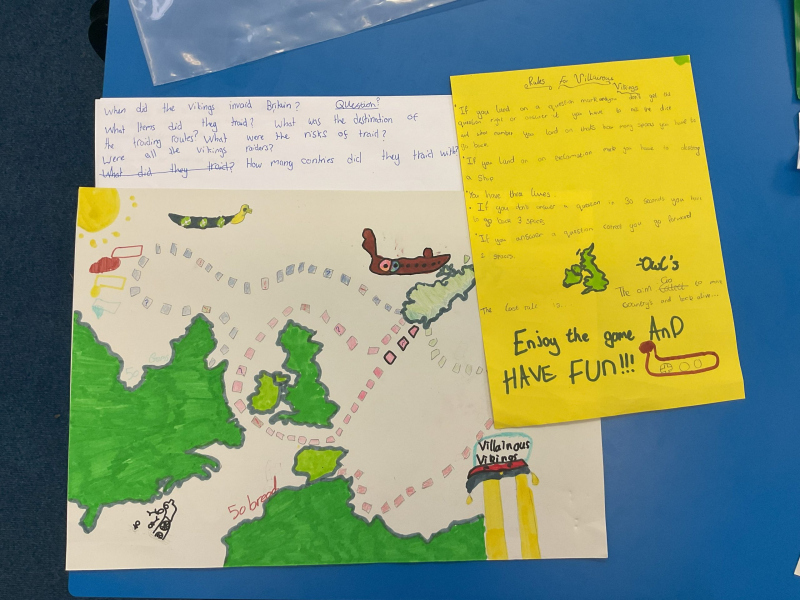 When did the Vikings invaid Britain? Question?
What Items did they traid? What was the destination of
the traiding routes? What were the risks of traid?
Were all the vikings raiders?
What did they traid? How many contries did they traid with?
Rules for Villainous
Vikings
If you land on a question mark and you don't get the
question right or answer it you have to roll the dice
and what number you land on thats how many spaces you have to
go back
If you land on an exclamation mark you have to
a ship
You have three lives
If you don't answer a question in 30 seconds you have
to go back 3 spaces
If you answer a question correct you go forward
spaces
Owl's
The aim Go to more
countrys and back alive...
The last rule is
Enjoy the game AnD
HAVE FUN!!!
50 bread
Villainous
Vikings